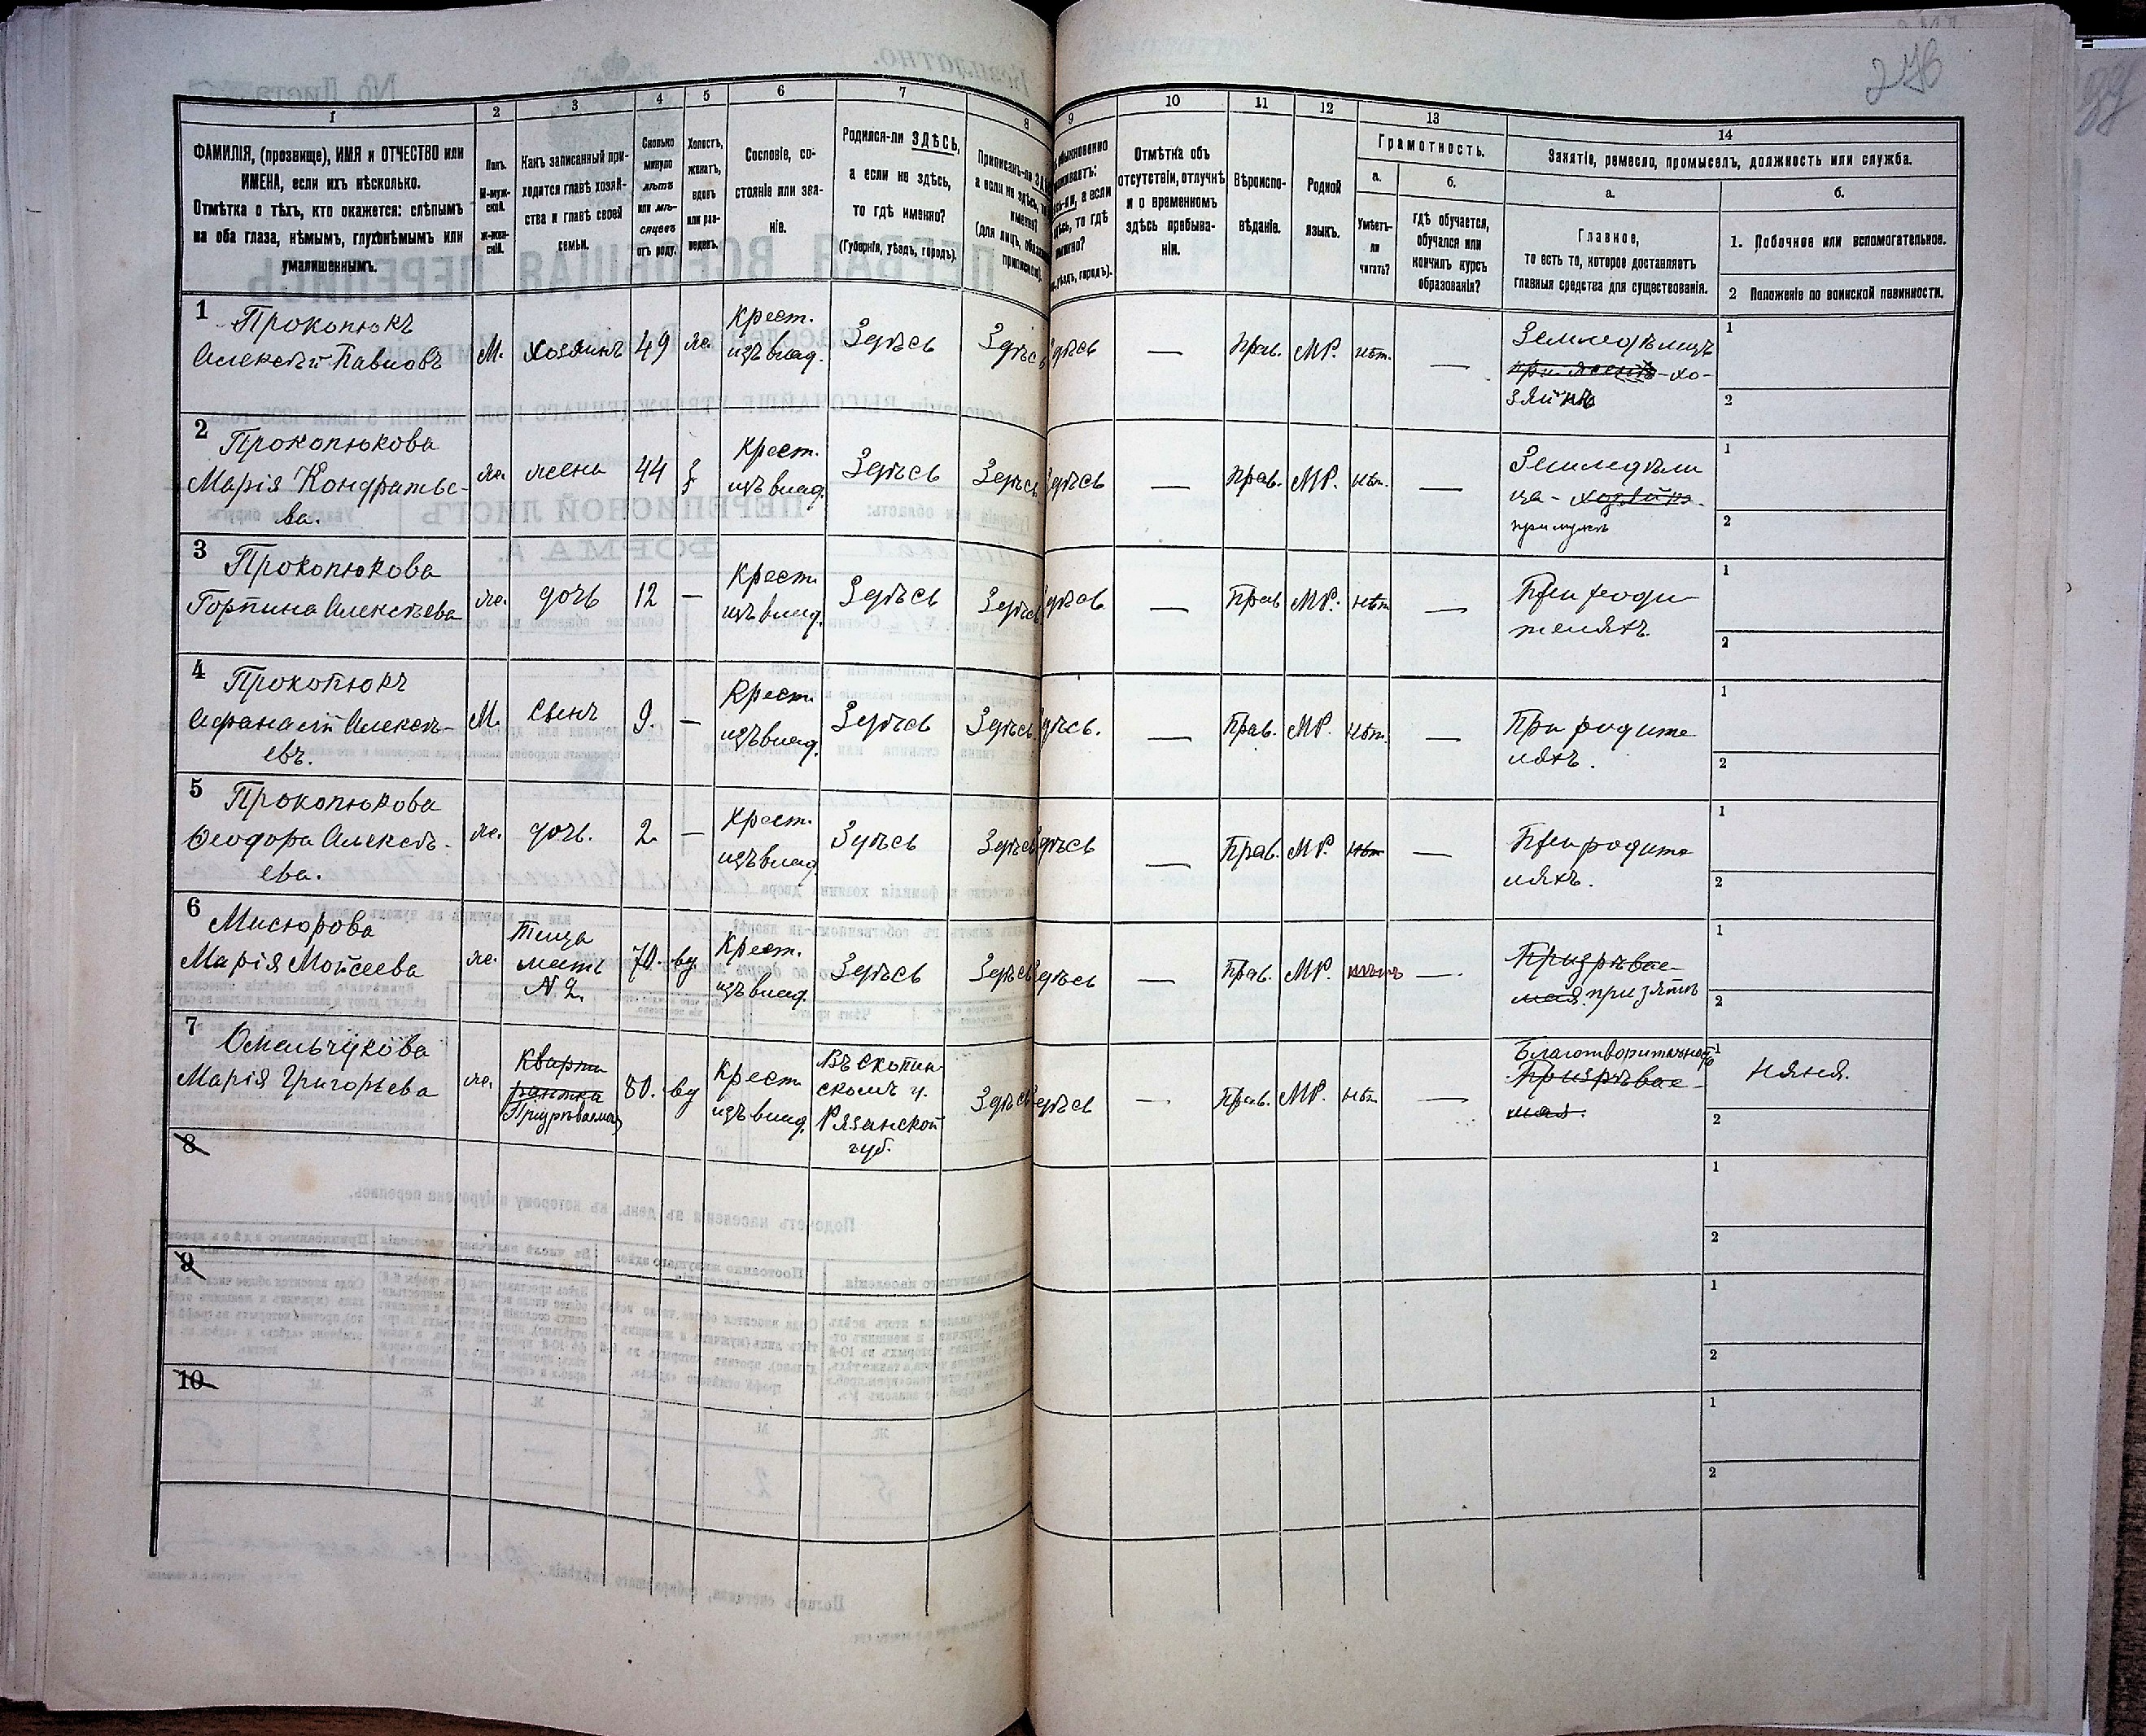 246
1
2
3
4
5
6
7
8
9
10
11
12
13
14
ФАМИЛІЯ, (прозвище), ИМЯ и ОТЧЕСТВО или
ИМЕНА, если ихъ нѣсколько.
Отмѣтка о тѣхъ, кто окажется: слѣпымъ
на оба глаза, нѣмымъ, глухонѣмымъ или
умалишеннымъ.
Полъ.
М-муж-
ской.
Ж-жен-
скій.
Какъ записанный при-
ходится главѣ хозяй-
ства и главѣ своей
семьи.
Сколько
минуло
лѣтъ
или мѣ-
сяцевъ
отъ роду.
Холостъ,
женатъ,
вдовъ
или раз-
веденъ.
Сословіе, со-
стояніе или зва-
ніе.
Родился-ли ЗДѢСЬ,
а если не здѣсь,
то гдѣ именно?
(Губернія, уѣздъ, городъ).
Приписанъ-ли
а если не здѣсь,
именно?
(для лицъ,
Отмѣтка объ
отсутствіи, отлучкѣ
и о временномъ
здѣсь пребыва-
ніи.
Вѣроиспо-
вѣданіе.
Родной
языкъ.
Грамотность.
а.
Умѣетъ-
ли
читать?
б.
гдѣ обучается,
обучался или
кончилъ курсъ
образованія?
Занятіе, ремесло, промыселъ, должность или служба.
а.
Главное,
то есть то, которое доставляетъ
главныя средства для существованія.
б.
1. Побочное или вспомогательное.
2 Положеніе по воинской повинности.
1
Прокопюкъ
Алексѣй Павловъ
М. хозяинъ 49 же. Крест.
изъ влад.
Здѣсь
Здѣсь
здѣсь
—
Прав. МР. нѣт. —
Земледѣлецъ
хо-
зяинъ
1
2
2
Прокопюкова
Марія Кондратье-
ва.
же. жена 44 з Крест.
изъ влад.
Здѣсь
Здѣсь
здѣсь
—
Прав. МР. нѣт. —
Земледѣли
ца - хозяйка
при мужѣ
1
2
3
Прокопюкова
Горпина Алексѣева
же. дочь 12 — Крест.
изъ влад.
Здѣсь
Здѣсь
здѣсь
—
Прав. МР. нѣт —
При роди
теляхъ.
1
2
4
Прокопюкъ
Афанасій Алексѣ-
евъ.
М. сынъ 9. — Крест.
изъ влад.
Здѣсь
Здѣсь
здѣсь.
—
Прав. МР. нѣт. —
При родите
ляхъ.
1
2
5
Прокопюкова
Ѳеодора Алексѣ-
ева.
же. дочь. 2. — Крест.
изъ влад.
Здѣсь
Здѣсь
здѣсь
—
Прав. МР. нѣт —
При родите
ляхъ.
1
2
6
Мисюрова
Марія Мойсеева
же. Теща
мать
N 2.
70. вд. Крест.
изъ влад.
Здѣсь
Здѣсь
здѣсь
—
Прав. МР. нѣтъ —
Призрѣвае-
мая. при зятѣ
1
2
7
Омельчукова
Марія Григорьева
же. Кварти
рантка
Призрѣваемая
80. вд Крест
изъ влад.
Въ Скопин
скомъ у.
Рязанской
губ.
Здѣсь
здѣсь
—
Прав. МР. нѣт —
Призрѣвае-
мая.
1
няня.
2
8
1
2
9
1
2
10
1
2